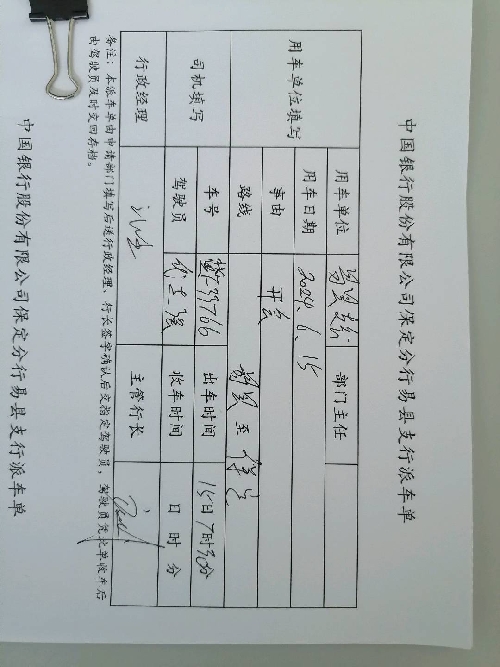 中国银行股份有限公司保定分行易县支行派车单
用车单位填写 用车单位 易县支行 部门主任
用车日期 2024.6.15
事由 开会
路线 易县 至 保定
司机填写 车号 出车时间 15日7时30分
驾驶员 收车时间 日 时 分
行政经理 主管行长
备注：本派车单由申请部门填写后送行政经理、行长签字确认后交指定驾驶员，驾驶员凭此单收车后
由驾驶员及时交回存档。
中国银行股份有限公司保定分行易县支行派车单